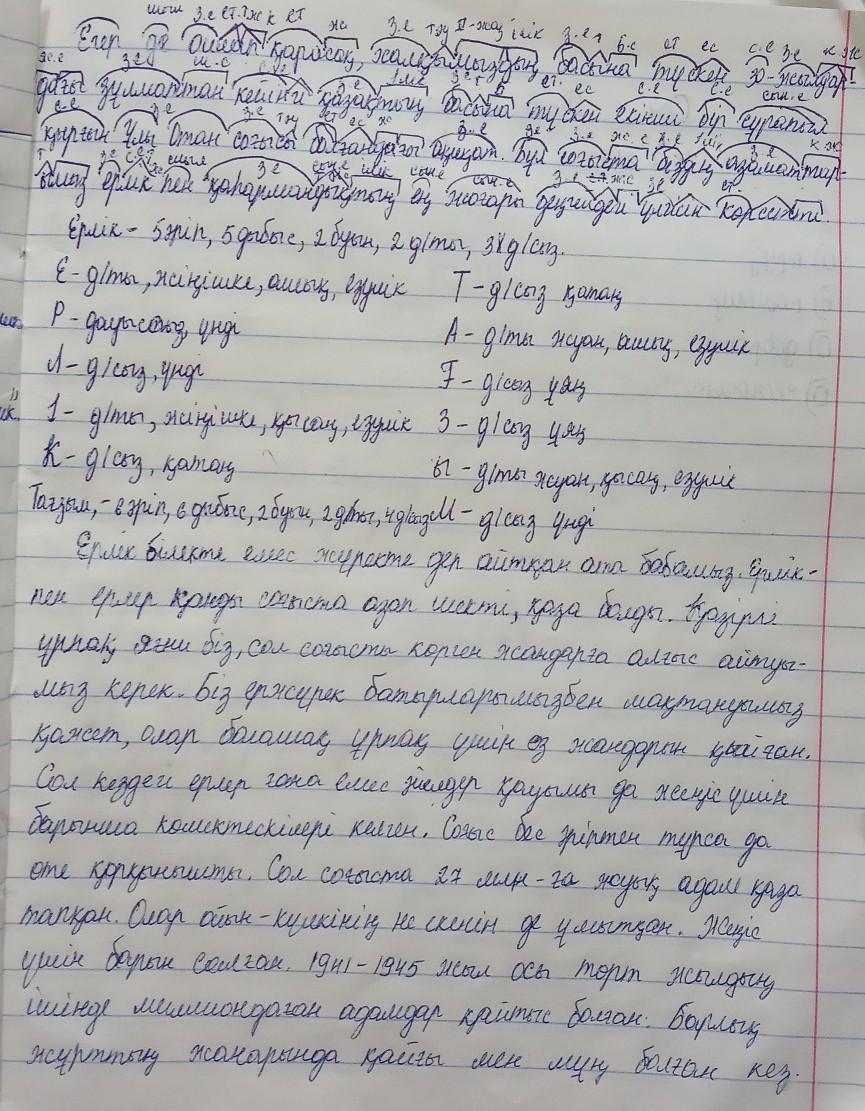 шот з.е ет. т.ж к ет жс з.е тж II-жақ ілік з.е т б.с ет ес с.е з.е к ж
Егер де ойлап қарасақ, халқымыздың басына түскен 30-жылдар-
дағы зұлматтан кейінгі қазақтың басына түскен екінші бір сұрапыл
қырғын Ұлы Отан соғысы болғандағы ақиқат. Бұл соғыста біздің азаматтар-
ымыз ерлік пен қаһармандықтың ең жоғары деңгейдегі үлгісін көрсетті.
Ерлік - 5 әріп, 5 дыбыс, 2 буын, 2 д/ты, 3 д/сыз.
Е - д/ты, жіңішке, ашық, езулік
Р - дауыссыз, үнді
Л - д/сыз, үнді
І - д/ты, жіңішке, қысаң, езулік
К - д/сыз, қатаң
Т - д/сыз қатаң
А - д/ты жуан, ашық, езулік
Ғ - д/сыз ұяң
З - д/сыз ұяң
Ы - д/ты жуан, қысаң, езулік
Тағзым, - 6 әріп, 6 дыбыс, 2 буын, 2 д/ты, 4 д/сыз М - д/сыз үнді
Ерлік білекте емес жүректе деп айтқан ата бабамыз. Ерлік-
пен ерлер қанды соғыста азап шекті, қаза болды. Қазіргі
ұрпақ, яғни біз, сол соғысты көрген жандарға алғыс айтуы-
мыз керек. Біз ержүрек батырларымызбен мақтануымыз
қажет, олар болашақ ұрпақ үшін өз жандарын қыйған.
Сол кездегі ерлер ғана емес әйелдер қауымы да жеңіс үшін
барынша көмектескілері келген. Соғыс бес әріптен тұрса да
өте қорқынышты. Сол соғыста 27 млн-ға жуық адам қаза
тапқан. Олар ойын-күлкінің не екенін де ұмытқан. Жеңіс
үшін барын салған. 1941-1945 жыл осы төрт жылдың
ішінде миллиондаған адамдар қайтыс болған. Барлық
жұрттың жанарында қайғы мен мұң болған кез.